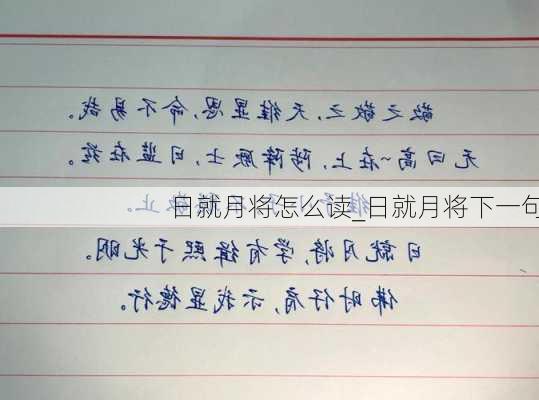 敬之敬之,天维显思,命不易哉。
无曰高~在上,陟降厥士,日监在兹。
维 止。
日就月将怎么读_日就月将下一句
日就月将,学有缉熙于光明。
佛时仔肩,示我显德行。